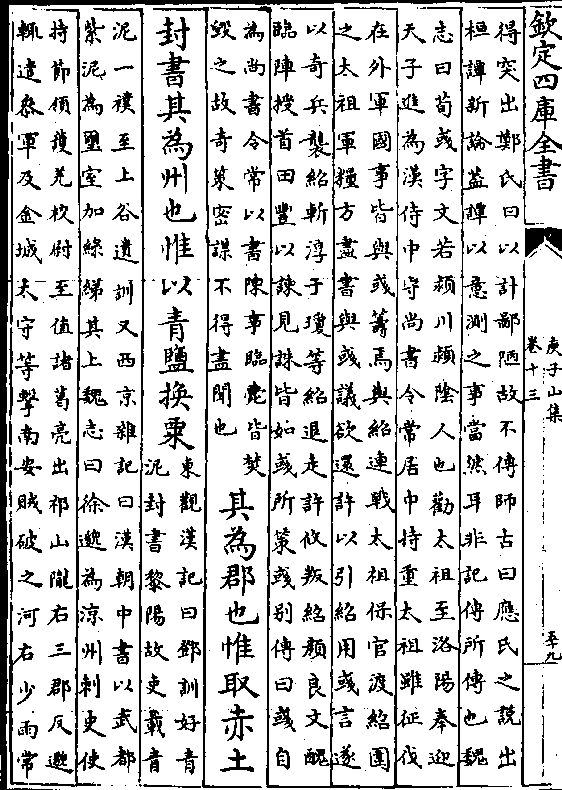 欽定四庫全書
庾子山集
卷十三
五十九
得突出鄭氏曰以計鄙陋故不傳師古曰應氏之說出
桓譚新論葢譚以意測之事當然耳非記傳所傳也魏
志曰荀彧字文若潁川潁陰人也勸太祖至洛陽奉迎
天子進為漢侍中守尚書令常居中持重太祖雖征伐
在外軍國事皆與彧籌焉與紹連戰太祖保官渡紹圍
之太祖軍糧方盡書與彧議欲還許以引紹用彧言遂
以奇兵襲紹斬淳于瓊等紹退走許攸叛紹顏良文醜
臨陣授首田豐以諫見誅皆如彧所策彧别傳曰彧自
為尚書令常以書陳事臨薨皆焚
毁之故奇策密謀不得盡聞也
其為郡也惟取赤土
封書其為州也惟以青鹽換粟
東觀漢記曰鄧訓好青
泥封書黎陽故吏載青
泥一襆至上谷遺訓又西京雜記曰漢朝中書以武都
紫泥為璽室加綠綈其上魏志曰徐邈為涼州刺史使
持節領護羌校尉至值諸葛亮出祁山隴右三郡反邈
輒遣叅軍及金城太守等擊南安賊破之河右少雨常